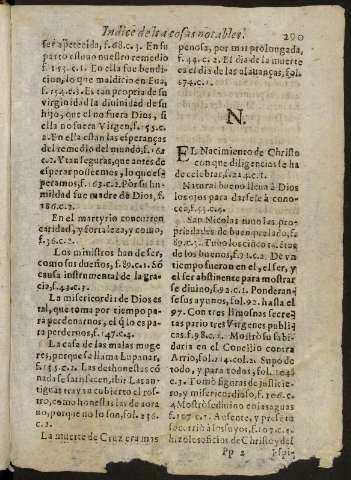 Indice de las cosas notables. 290
ser apetecida, f.68.c.3. En su
parto estouo nuestro remedio
f.153.c.1. En ella fue bendi-
cion, lo que maldicio en Eua,
f.154.c.3. Es tan propria de su
virginidad la diuinidad de su
hijo, que el no fuera Dios, si
ella no fuera Virgen, f.155.c.
2. En ella estan las esperanças
del remedio del mundo, f.162
c.2. Y tan seguras, que antes de
esperar possemos, lo que espe
ramos, f.163.c.2. Por su hu-
mildad fue madre de Dios, f.
186.c.2.
En el martyrio concurren
caridad, y fortaleza, y como,
f.36.c.2.
Los ministros han de ser,
como sus dueños, f.89.c.1. Sõ
causa instrumental de la gra-
cia, f.43.c.3.
La misericordia de Dios es
tal, que toma por tiempo pa-
ra perdonarnos, el q̃ lo es pa-
ra perdernos, f.147.c.4.
La casa de las malas muge
res, porque se llama Lupanar,
f.155.c.2. Las deshonestas cõ
nada se satisfacen, ibi: Las an-
tiguas traya cubierto el ros-
tro, como honestas las de aora
no, porque no su son, fol.236.
c.2.
La muerte de Cruz era mas
penosa, por mas prolongada,
f.44.c.2. El dia de la muerte
es el dia de las alauanças, fol.
674.c.1.
N.
EL Nacimiento de Christo
con que diligencias se ha
de celebrar, f.214.c.1.
Natural bueno lleua à Dios
los ojos para darsele à cono-
cer, f.53.c.4.
San Nicolas tuuo las pro-
priedades de buen prelado, f.
89.c.3. Tuuo los cinco talẽtos
de los buenos, f.91.c.2. De vn
tiempo fueron en el, el ser, y
el ser abstinente para mostrar
se diuino, f.92.c.1. Ponderan-
se sus ayunos, fol.92. hasta el
97. Con tres limosnas secre-
tas pario tres Virgenes publi-
cas, f.98.c.2. Mostrò su sabi-
duria en el Concilio contra
Arrio, fol.114.col.2. Supo de
todo, y para todos, fol.104
c.3. Tomò figuras de justicie-
ro, y misericordioso, f.106.c.
4. Mostrò se diuino en las aguas
f.107.c.1. Ausente, y presẽte
socorriò à los suyos, f.107.c.3.
hizole sus oficios de Christo y del
Pp 2